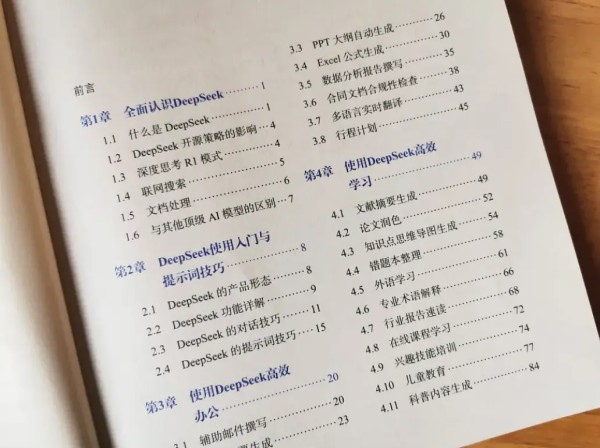 前言
第1章 全面认识DeepSeek 1
1.1 什么是 DeepSeek 1
1.2 DeepSeek 开源策略的影响 4
1.3 深度思考 R1 模式 4
1.4 联网搜索 5
1.5 文档处理 6
1.6 与其他顶级 AI 模型的区别 7
第2章 DeepSeek使用入门与
提示词技巧 8
2.1 DeepSeek 的产品形态 8
2.2 DeepSeek 功能详解 9
2.3 DeepSeek 的对话技巧 11
2.4 DeepSeek 的提示词技巧 15
第3章 使用DeepSeek高效
办公 20
3.1 辅助邮件撰写 20
要生成 23
3.3 PPT 大纲自动生成 26
3.4 Excel 公式生成 30
3.5 数据分析报告撰写 35
3.6 合同文档合规性检查 38
3.7 多语言实时翻译 43
3.8 行程计划 45
第4章 使用DeepSeek高效
学习 49
4.1 文献摘要生成 49
4.2 论文润色 52
4.3 知识点思维导图生成 54
4.4 错题本整理 58
4.5 外语学习 61
4.6 专业术语解释 66
4.7 行业报告速读 68
4.8 在线课程学习 72
4.9 兴趣技能培训 74
4.10 儿童教育 77
4.11 科普内容生成 84